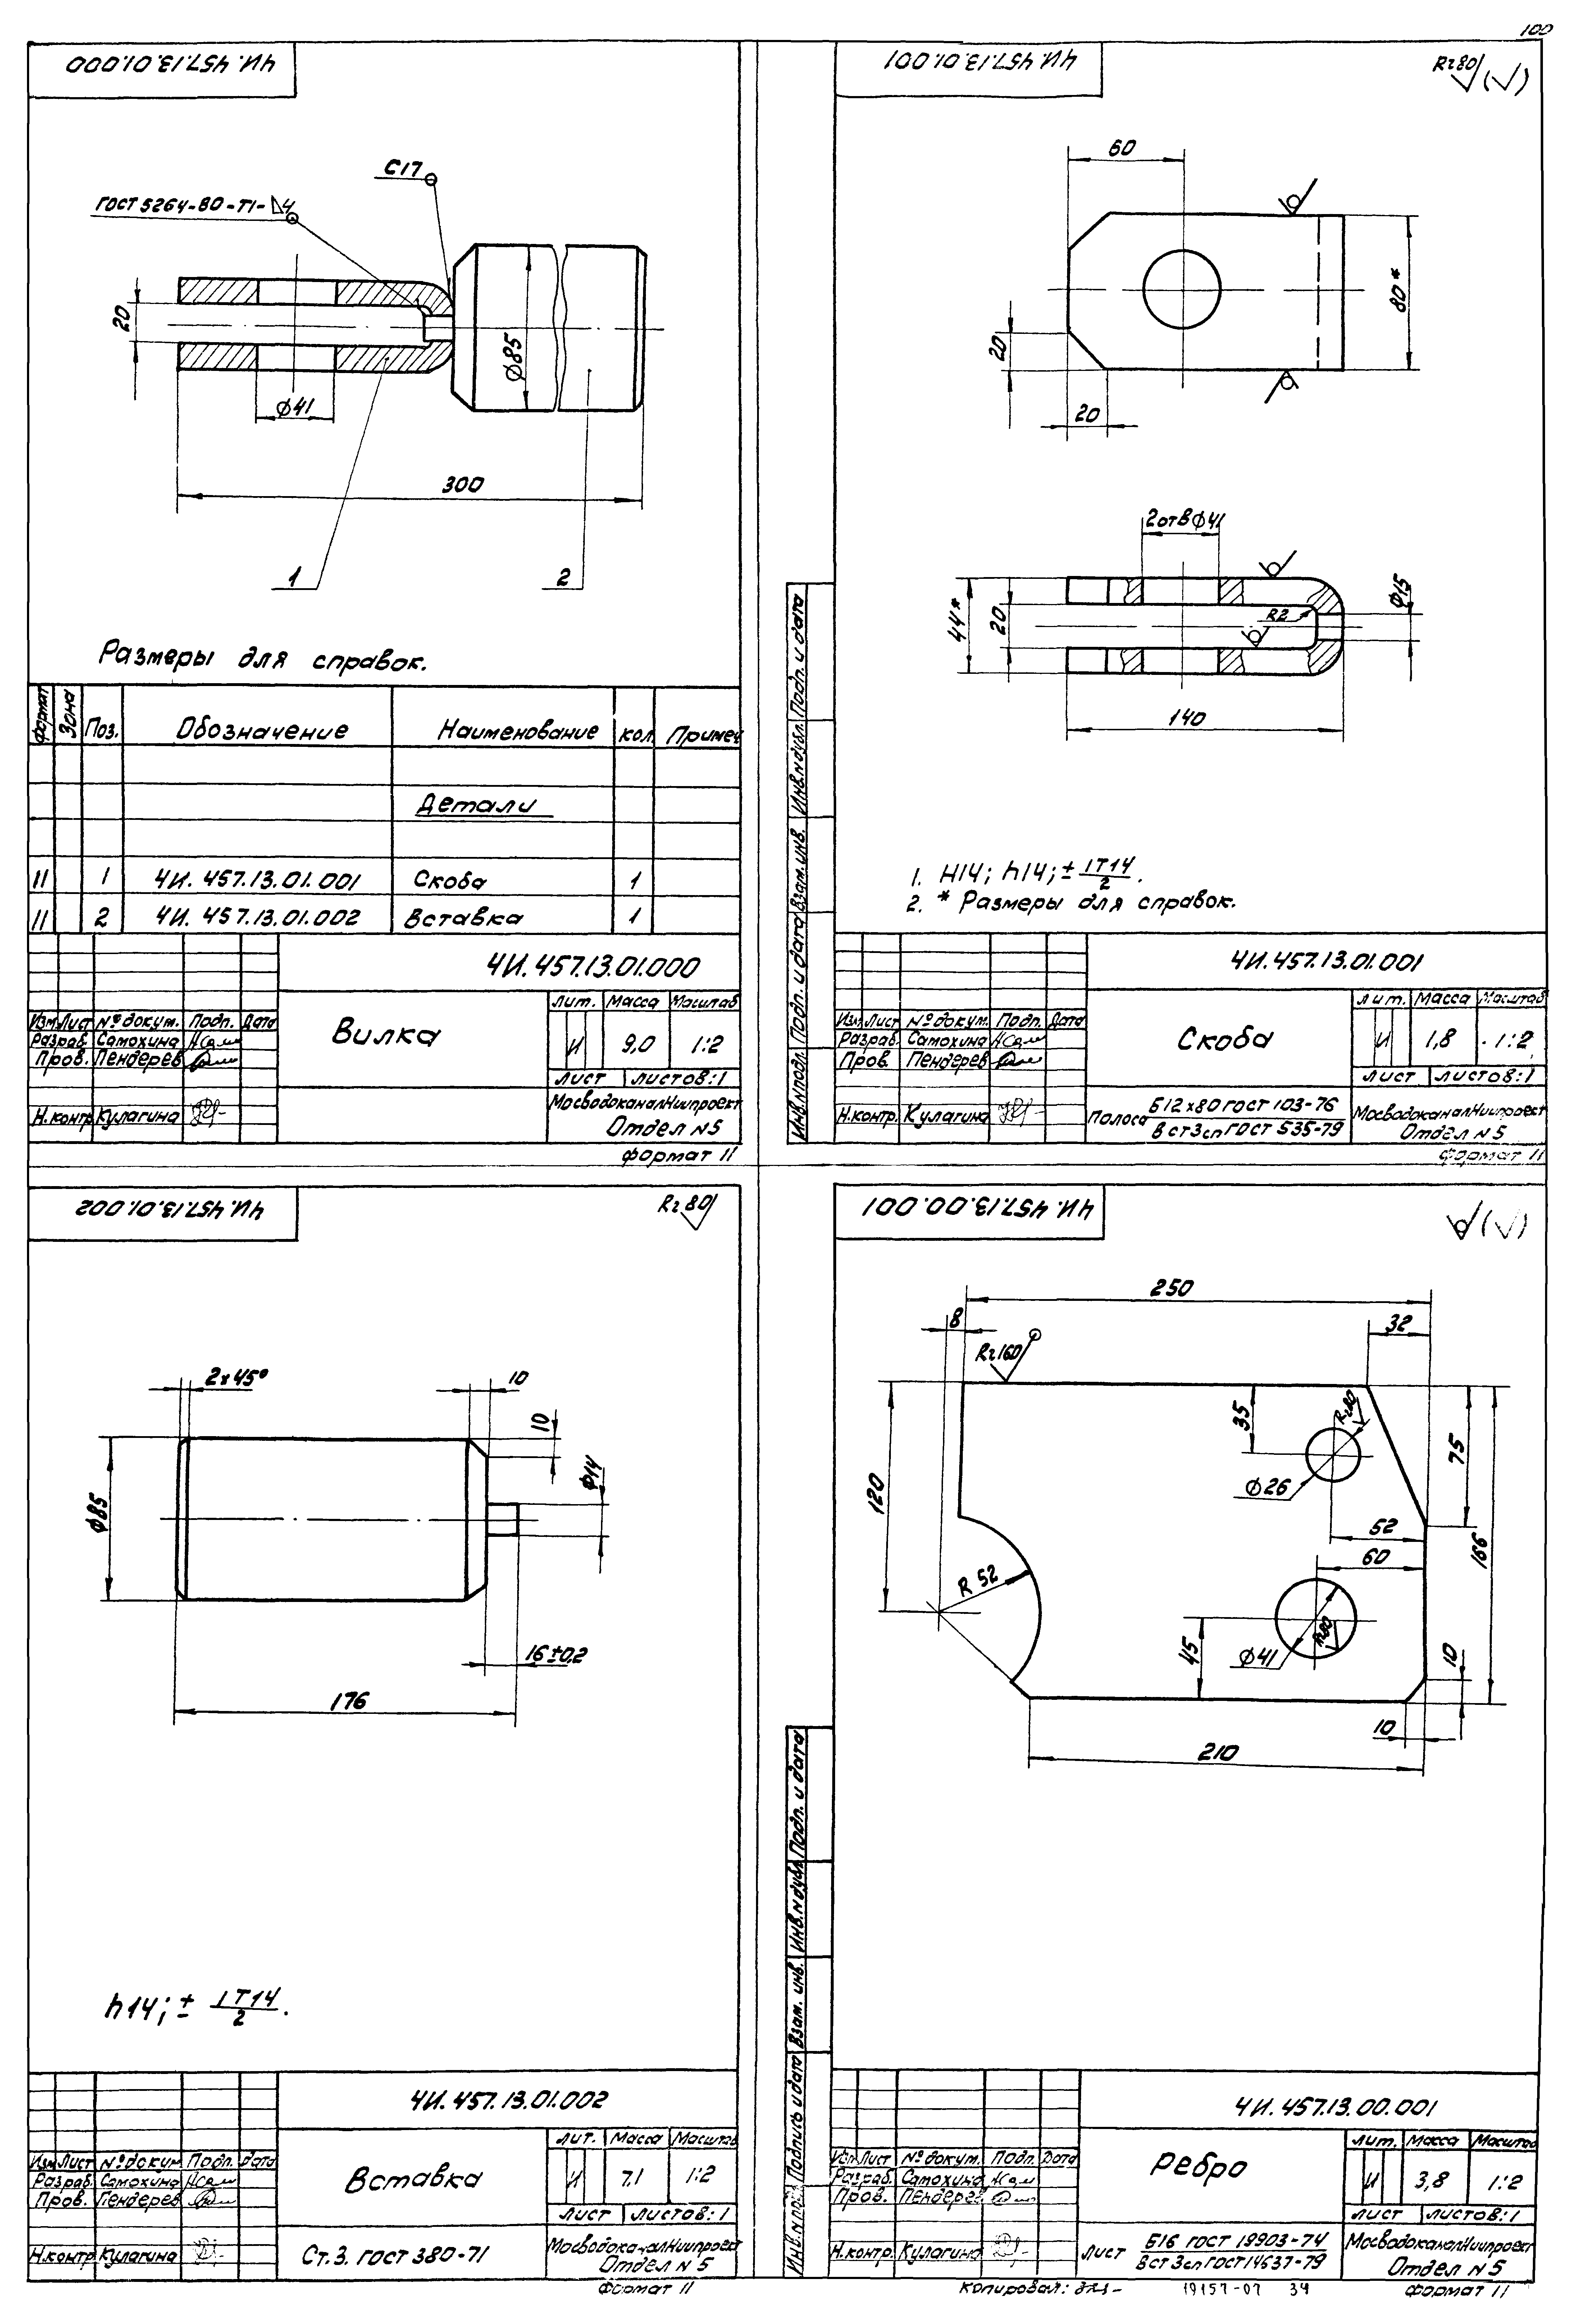 100
ЧИ.457.13.01.000
С17
ГОСТ 5264-80-Т1-◺4
20
Ф85
Ф41
300
1
2
Размеры для справок.
Формат Зона Поз. Обозначение Наименование Кол. Примеч
Детали
11 1 ЧИ.457.13.01.001 Скоба 1
11 2 ЧИ.457.13.01.002 Вставка 1
ЧИ.457.13.01.000
Лит. Масса Масштаб
Изм Лист № докум. Подп. Дата
Вилка
И 9,0 1:2
Разраб. Самохина
Пров. Пендерев
Лист Листов:1
Н.контр. Кулагина
МосводоканалНиипроект
Отдел N5
Формат 11
ЧИ.457.13.01.001
Rz80 (√)
60
80*
20
20
2 отв Ф41
44*
20
R2
Ф15
140
1. Н14; h14; ± IT14/2.
2. * Размеры для справок.
Инв.N подл. Подп. и дата Взам. инв. Инв.N дубл. Подп. и дата
ЧИ.457.13.01.001
Лит. Масса Масштаб
Изм Лист № докум. Подп. Дата
Скоба
И 1,8 1:2
Разраб. Самохина
Пров. Пендерев
Лист Листов:1
Н.контр. Кулагина
Полоса Б12х80 ГОСТ 103-76
В Ст3сп ГОСТ 535-79
МосводоканалНиипроект
Отдел N5
Формат 11
ЧИ.457.13.01.002
Rz80
2х45°
10
10
Ф14
Ф85
16±0,2
176
h14; ± IT14/2.
ЧИ.457.13.01.002
Лит. Масса Масштаб
Изм Лист № докум. Подп. Дата
Вставка
И 7,1 1:2
Разраб. Самохина
Пров. Пендерев
Лист Листов:1
Н.контр. Кулагина
Ст.3. ГОСТ 380-71
МосводоканалНиипроект
Отдел N5
Формат 11
ЧИ.457.13.00.001
(√)
250
8
32
Rz160
35
Rz80
75
120
Ф26
52
166
60
R 52
45
Ф41
Rz80
10
10
210
Инв.N подл. Подпись и дата Взам. инв. Инв.N дубл. Подп. и дата
ЧИ.457.13.00.001
Лит. Масса Масштаб
Изм Лист № докум. Подп. Дата
Ребро
И 3,8 1:2
Разраб. Самохина
Пров. Пендерев
Лист Листов:1
Н.контр. Кулагина
Лист Б16 ГОСТ 19903-74
Вст 3сп ГОСТ 14637-79
МосводоканалНиипроект
Отдел N5
Копировал: 19157-07 34 Формат 11